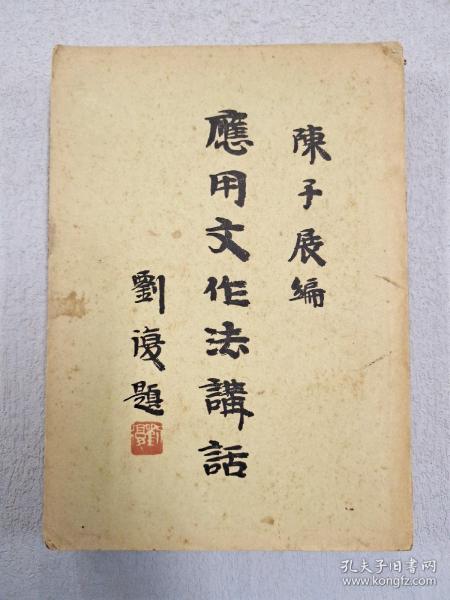 陳子展編
應用文作法講話
劉復題
孔夫子旧书网
www.kongfz.com